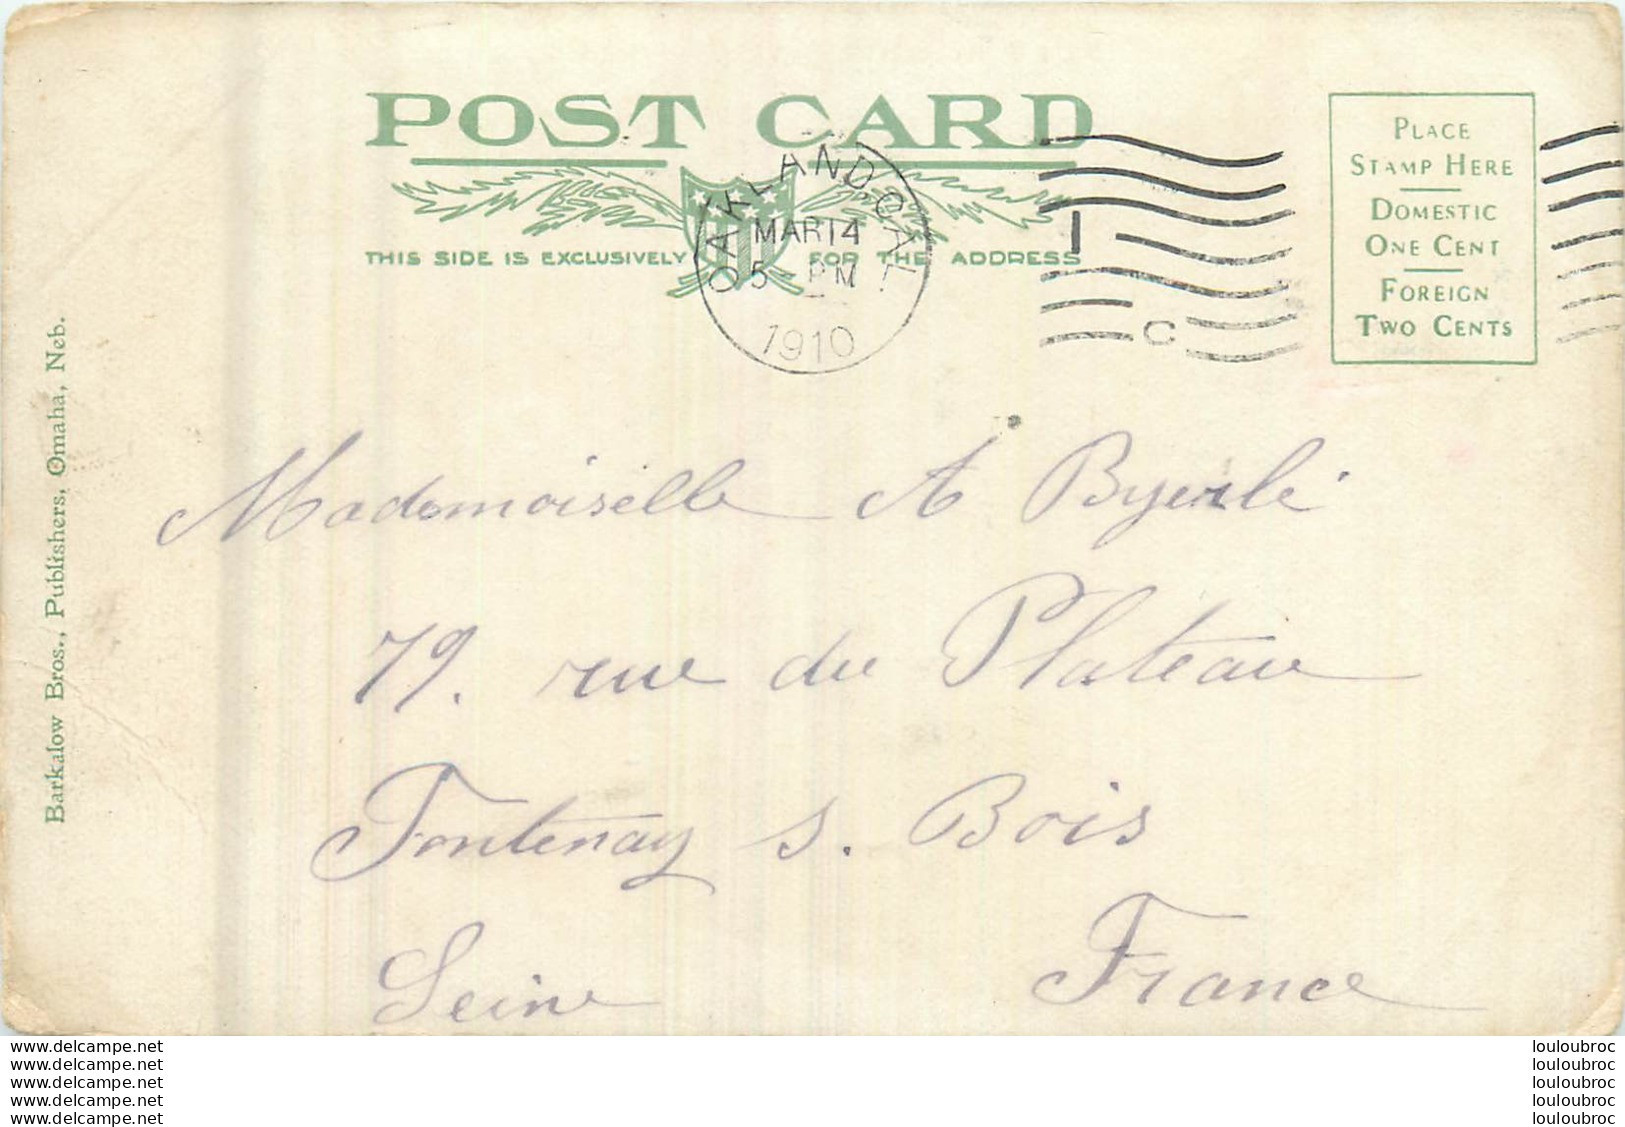 POST CARD
THIS SIDE IS EXCLUSIVELY FOR THE ADDRESS
OAKLAND, CAL.
MAR 14
5 PM
1910
I
C
PLACE
STAMP HERE
DOMESTIC
ONE CENT
FOREIGN
TWO CENTS
Barkalow Bros., Publishers, Omaha, Neb.
Mademoiselle A Byerlé
79. rue du Plateau
Fontenay s. Bois
Seine France
www.delcampe.net louloubroc
www.delcampe.net louloubroc
www.delcampe.net louloubroc
www.delcampe.net louloubroc
www.delcampe.net louloubroc